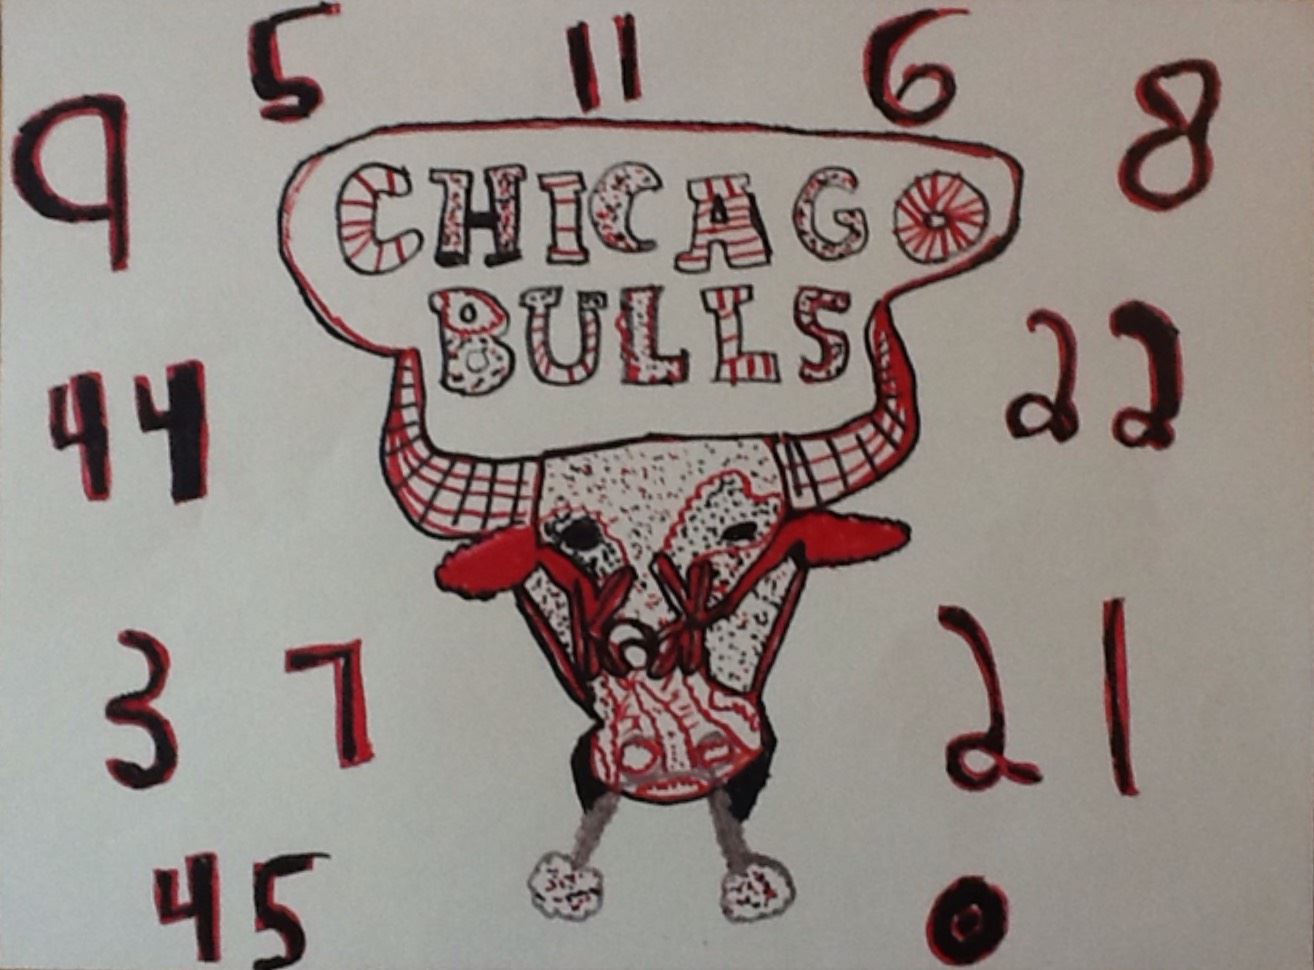 5 11 6
9 8
CHICAGO
BULLS
44 22
37 21
45 0